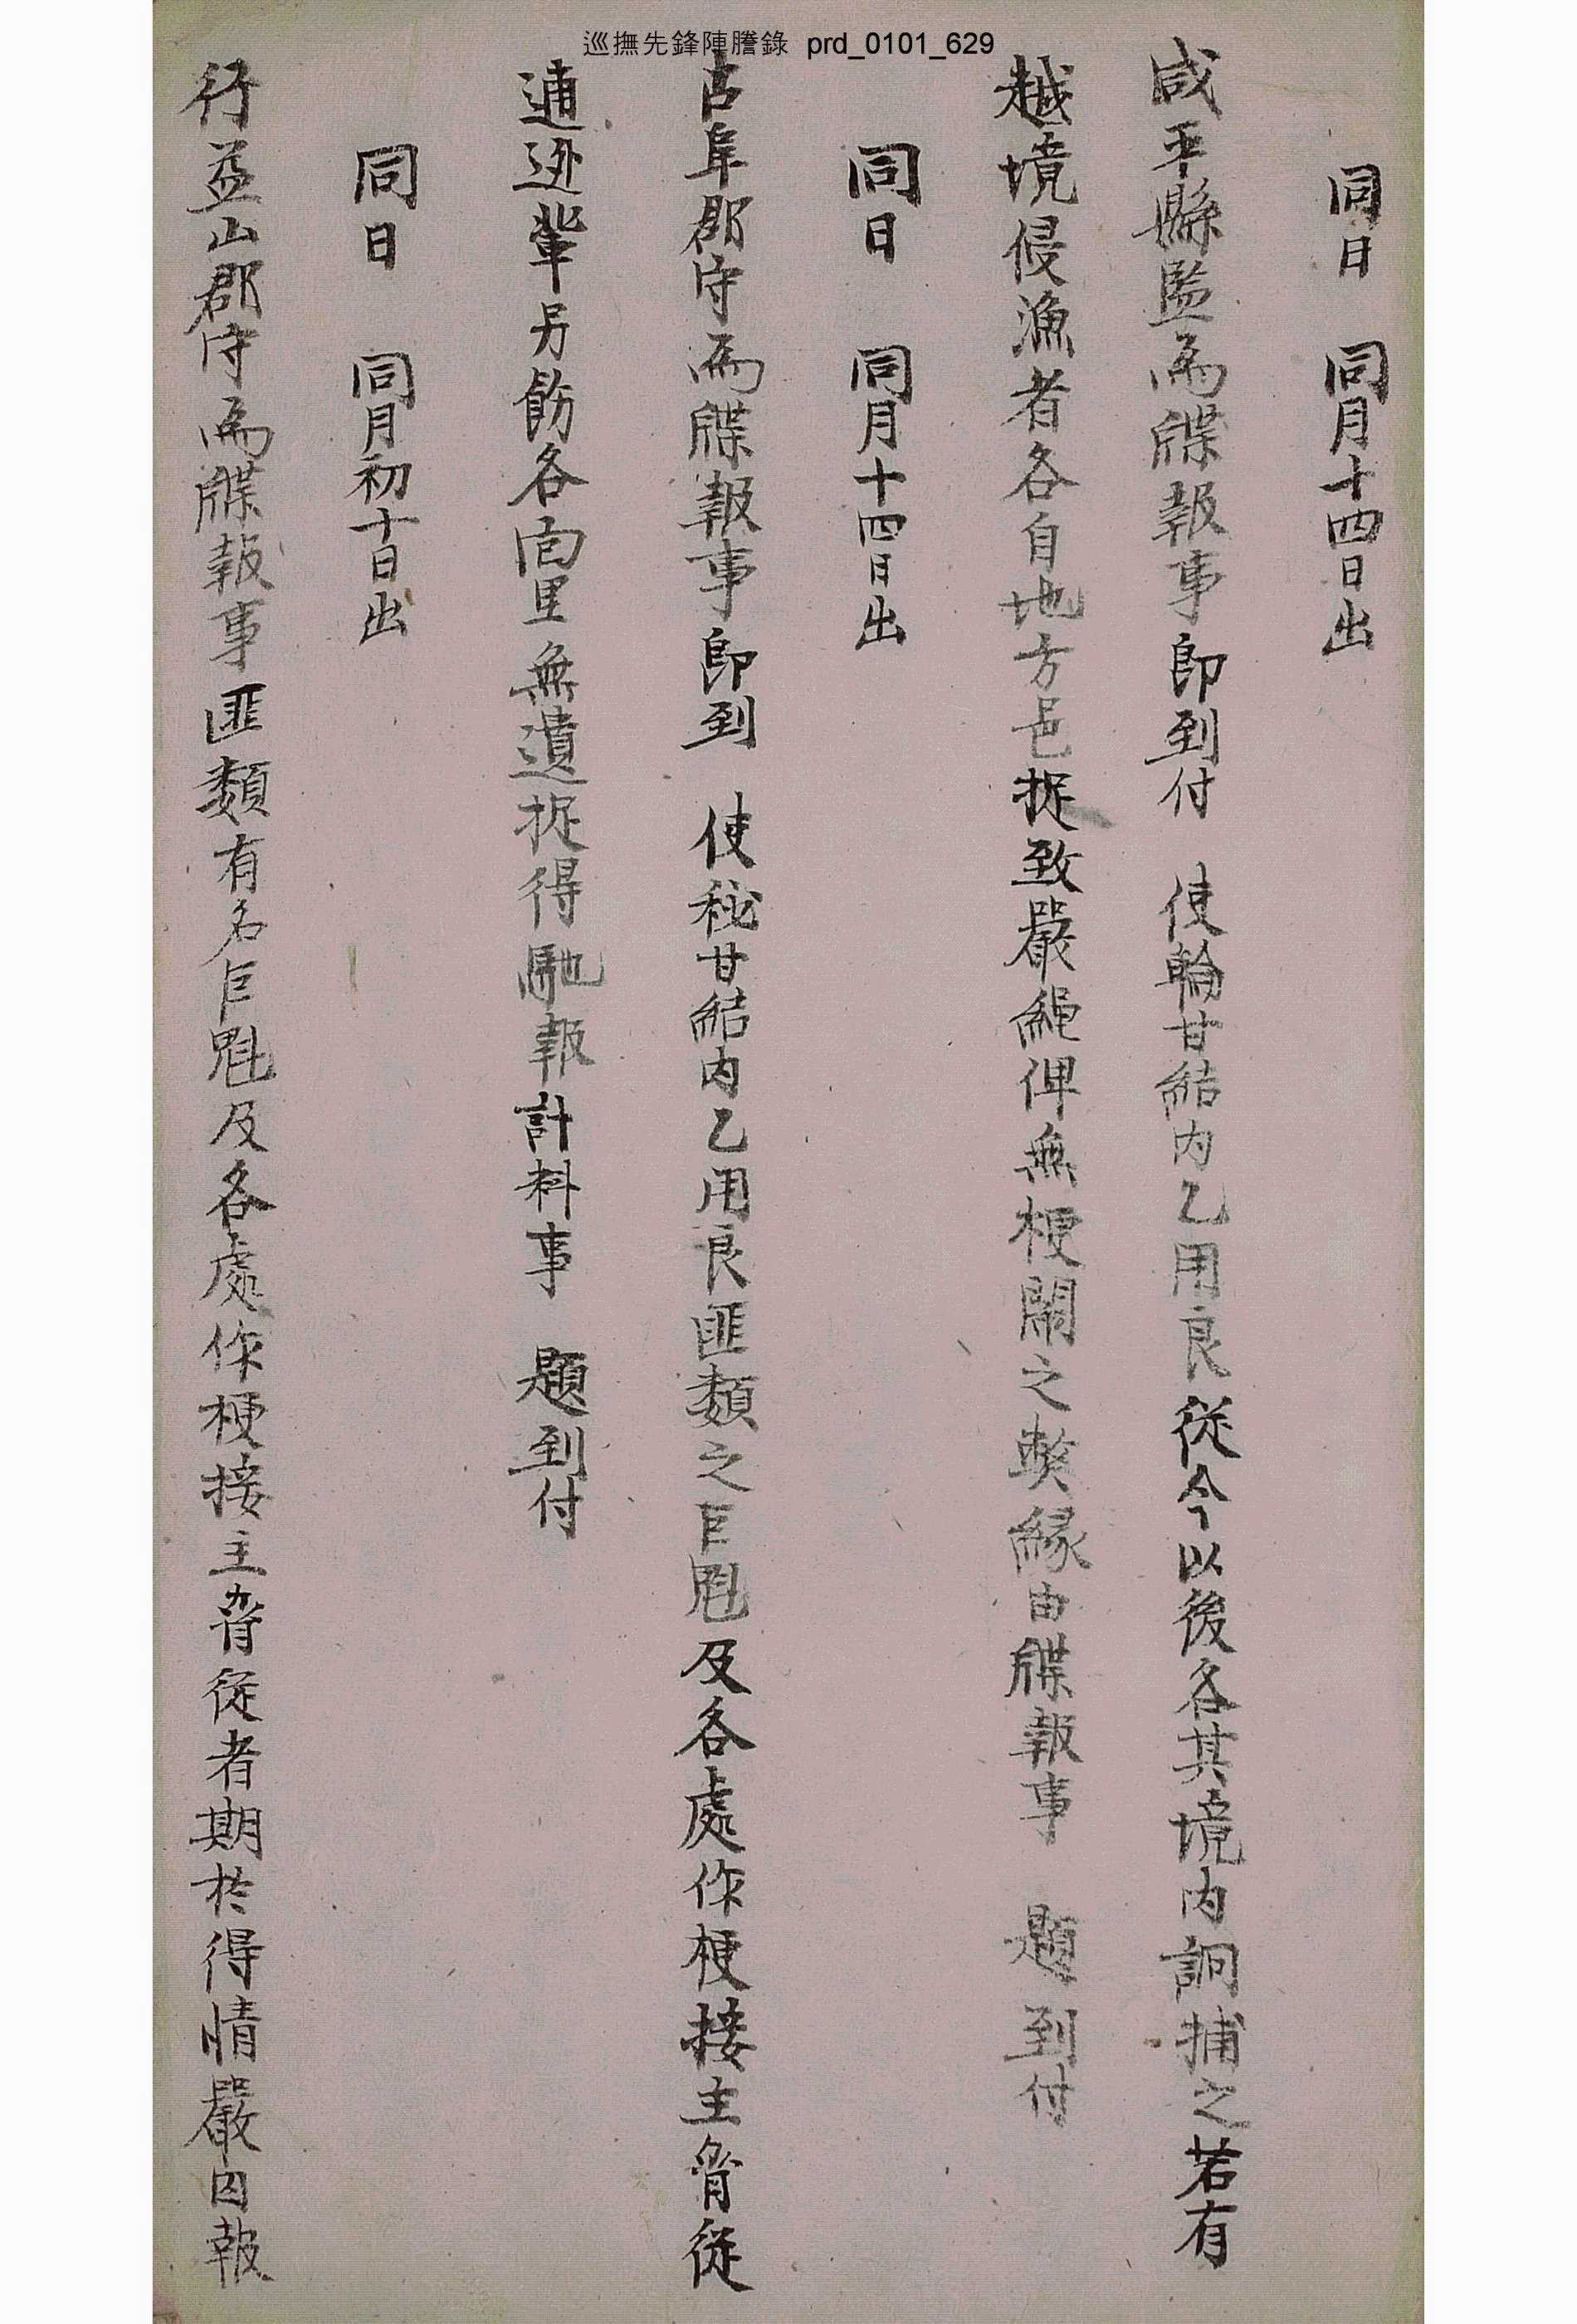 巡撫先鋒陣謄錄 prd_0101_629
同日 同月十四日出
咸平縣監爲牒報事卽到付 使輪甘結內乙用良從今以後各其境內詗捕之若有
越境侵漁者各自地方邑捉致嚴繩俾無梗閙之獘緣由牒報事 題到付
同日 同月十四日出
古阜郡守爲牒報事卽到 使秘甘結內乙用良匪類之巨魁及各處作梗接主脅從
逋逃輩另飭各面里無遺捉得馳報計料事 題到付
同日 同月初十日出
行益山郡守爲牒報事匪類有名巨魁及各處作梗接主脅從者期於得情嚴囚報